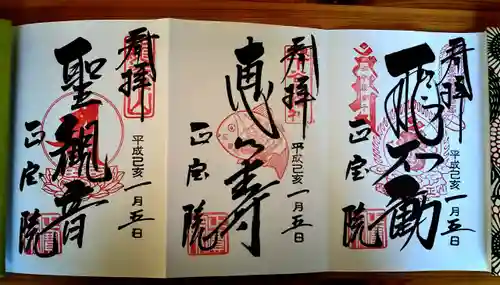 奉拝
飛不動
正宝院
平成己亥一月五日
奉拝
恵比寿
正宝院
平成己亥一月五日
奉拝
聖観音
正宝院
平成己亥一月五日